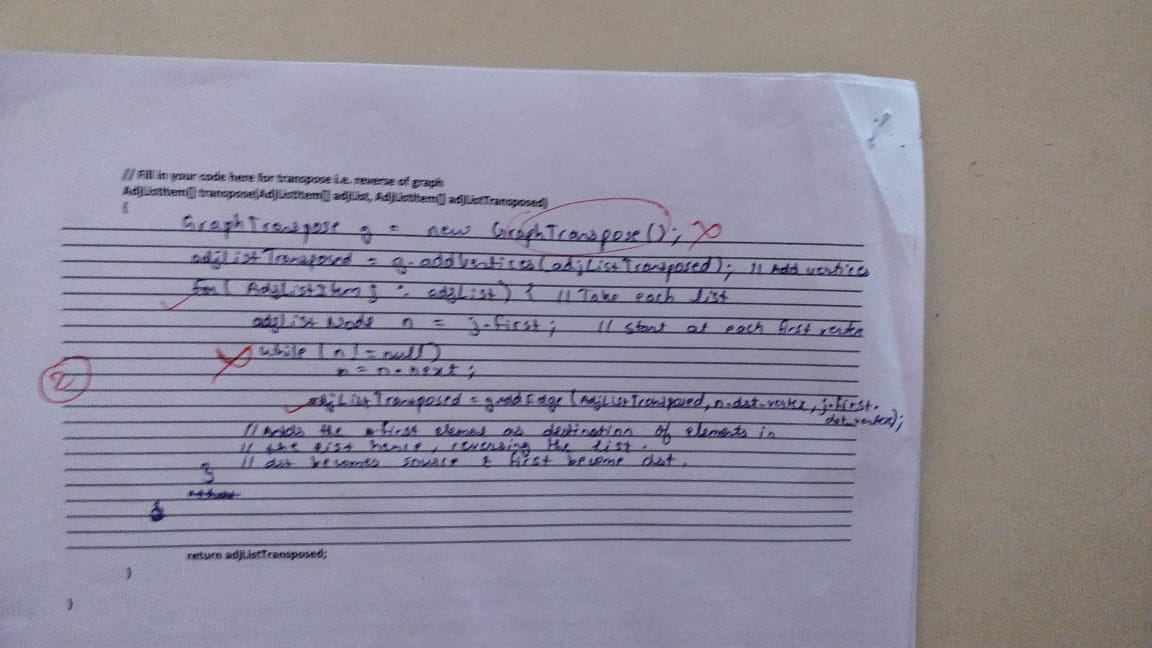 // Fill in your code here for transpose i.e. reverse of graph
AdjListItem[] transpose(AdjListItem[] adjList, AdjListItem[] adjListTransposed)
{
GraphTranspose g = new GraphTranspose();
adjListTransposed = g.addVertices(adjListTransposed); // Add vertices
for( AdjListItem j : adjList) { // Take each list
adjList Node n = j.first; // start at each first vertex
while (n != null)
n = n.next;
2
adjListTransposed = g.addEdge (AdjListTransposed, n.dst_vertex, j.first.
dst_vertex);
// Adds the first element as destination of elements in
// the list hence, reversing the list.
// dst becomes source & first become dst.
}
}
return adjListTransposed;
}
}